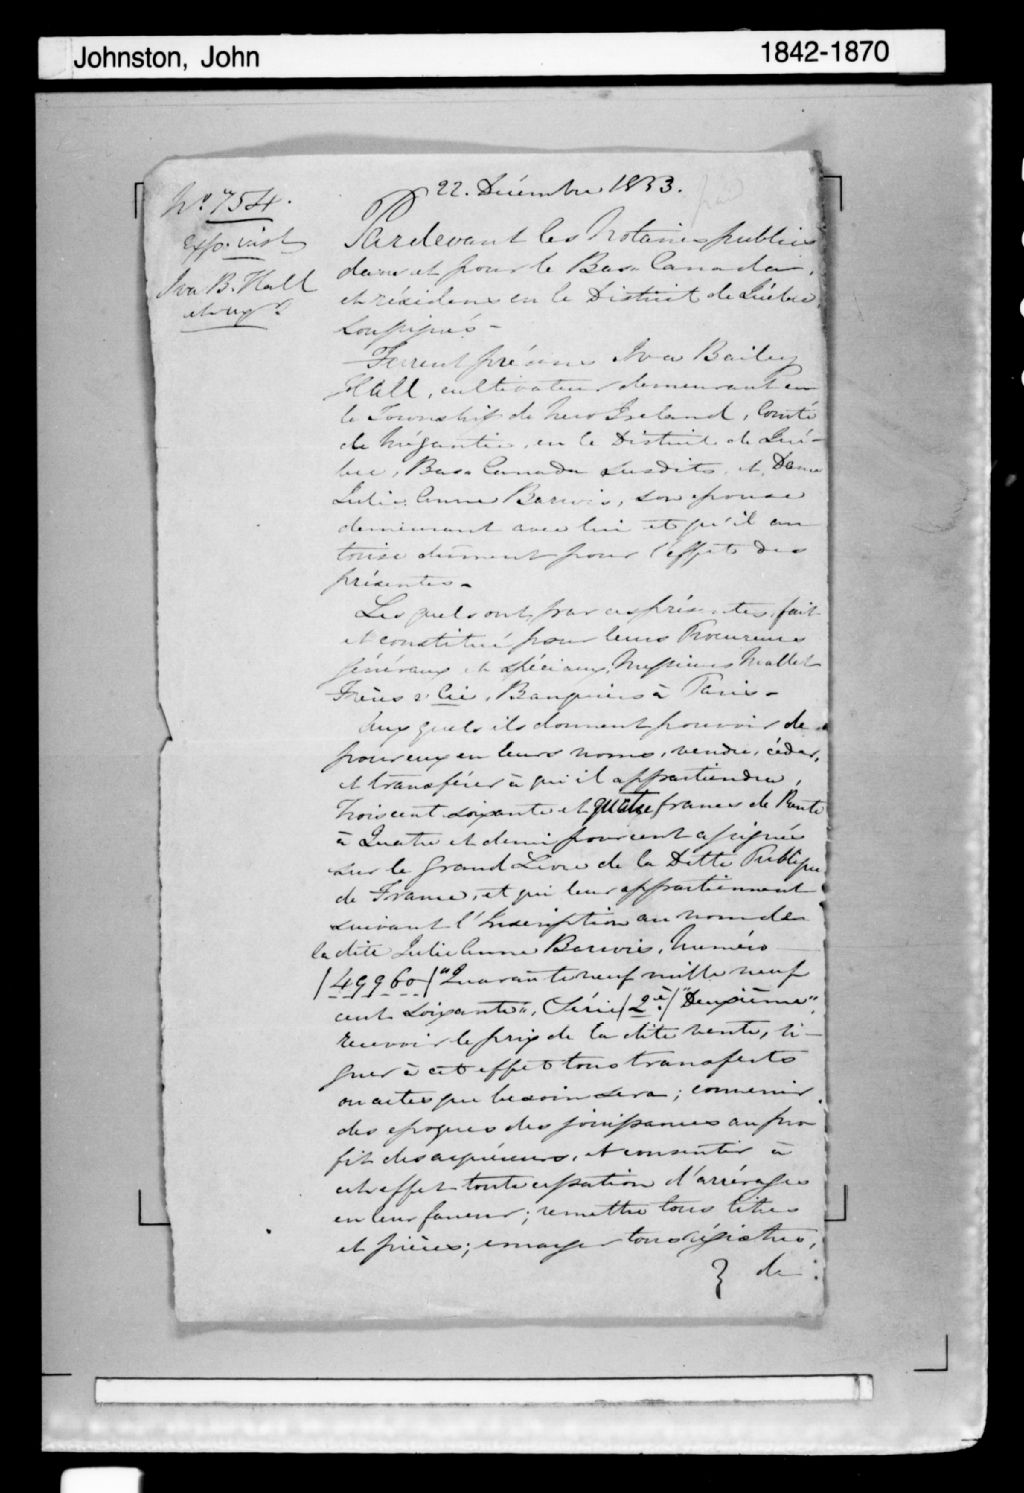 Johnston, John
1842-1870
22. Décembre 1853.
No. 754.
Ira B. Hall
et ux
Pardevant les Notaires publics
dans et pour le Bas Canada,
et résidens en le District de Québec,
Soussignés -
Furent présens Ira Bailey
Hall, cultivateur demeurant en
le Township de New Ireland, Comté
de Mégantic, en le District de Qué-
bec, Bas Canada susdits, et Dame
Julie Anne Barwis, son epouse
demeurant avec lui et qu'il au
torise dûment pour l'effet des
présentes -
Lesquels ont par ces présentes fait
et constitué pour leurs Procureurs
généraux et spéciaux, Messieurs Mallet
Frères & Cie, Banquiers à Paris -
Auxquels ils donnent pouvoir de
pour eux en leurs noms, vendre, céder,
et transférer à qui il appartiendra,
Trois cent soixante et quatre francs de Rente
à Quatre et demi pour cent assignée
sur le Grand Livre de la Dette Publique
de France, et qui leur appartiennent
suivant l'Inscription au nom de
la dite Julie Anne Barwis, Numéro
(49960) "Quarante neuf mille neuf
cent soixante", Série (2e) "Deuxième",
recevoir le prix de la dite vente, si-
gner à cet effet tous transferts
ou actes que besoin sera; convenir
des epoques des jouissances au pro
fit des acquéreurs, et consentir à
cet effet toute cessation d'arrérages
en leur faveur; remettre tous titres
et pièces; emarger tous régistres,
de